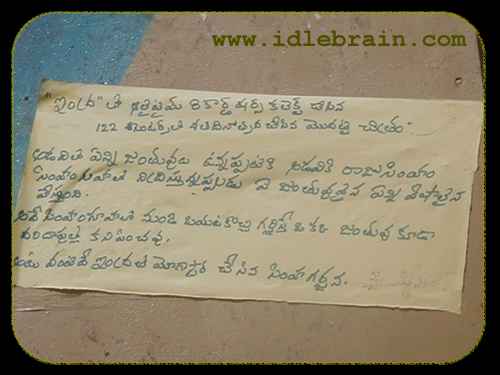 www.idlebrain.com
"ఇంద్ర" తో ఆల్‌టైమ్ రికార్డ్ షేర్స్ కలెక్ట్ చేసిన
122 సెంటర్స్‌లో శతదినోత్సవం చేసిన మొదటి చిత్రం.
అడవిలో ఎన్ని జంతువులు ఉన్నప్పటికి అడవికి రాజు సింహం
సింహం గుహలో నిద్రిస్తున్నప్పుడు ఏ జంతువైనా ఎన్ని వేషాలైన
వేస్తుంది.
అదే సింహం గుహలో నుండి బయటకొచ్చి గర్జిస్తే ఒక్క జంతువు కూడా
కనిపించవు.
ఇంద్రతో మెగాస్టార్ చేసిన సింహగర్జన.